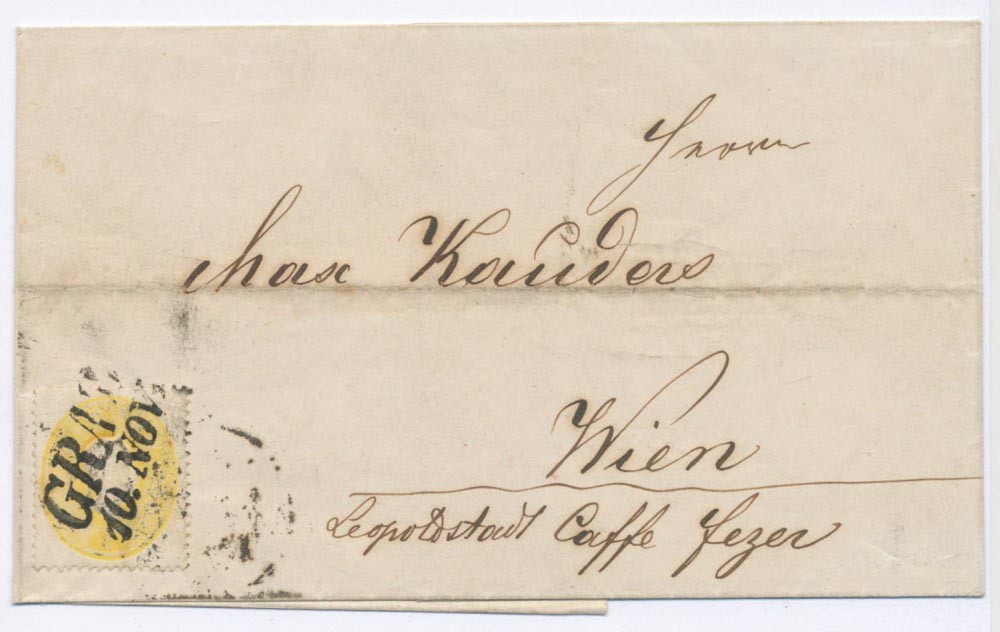 Herrn
Max Kauders
Wien
Leopoldstadt Caffe Fezer
GRA
10. NOV